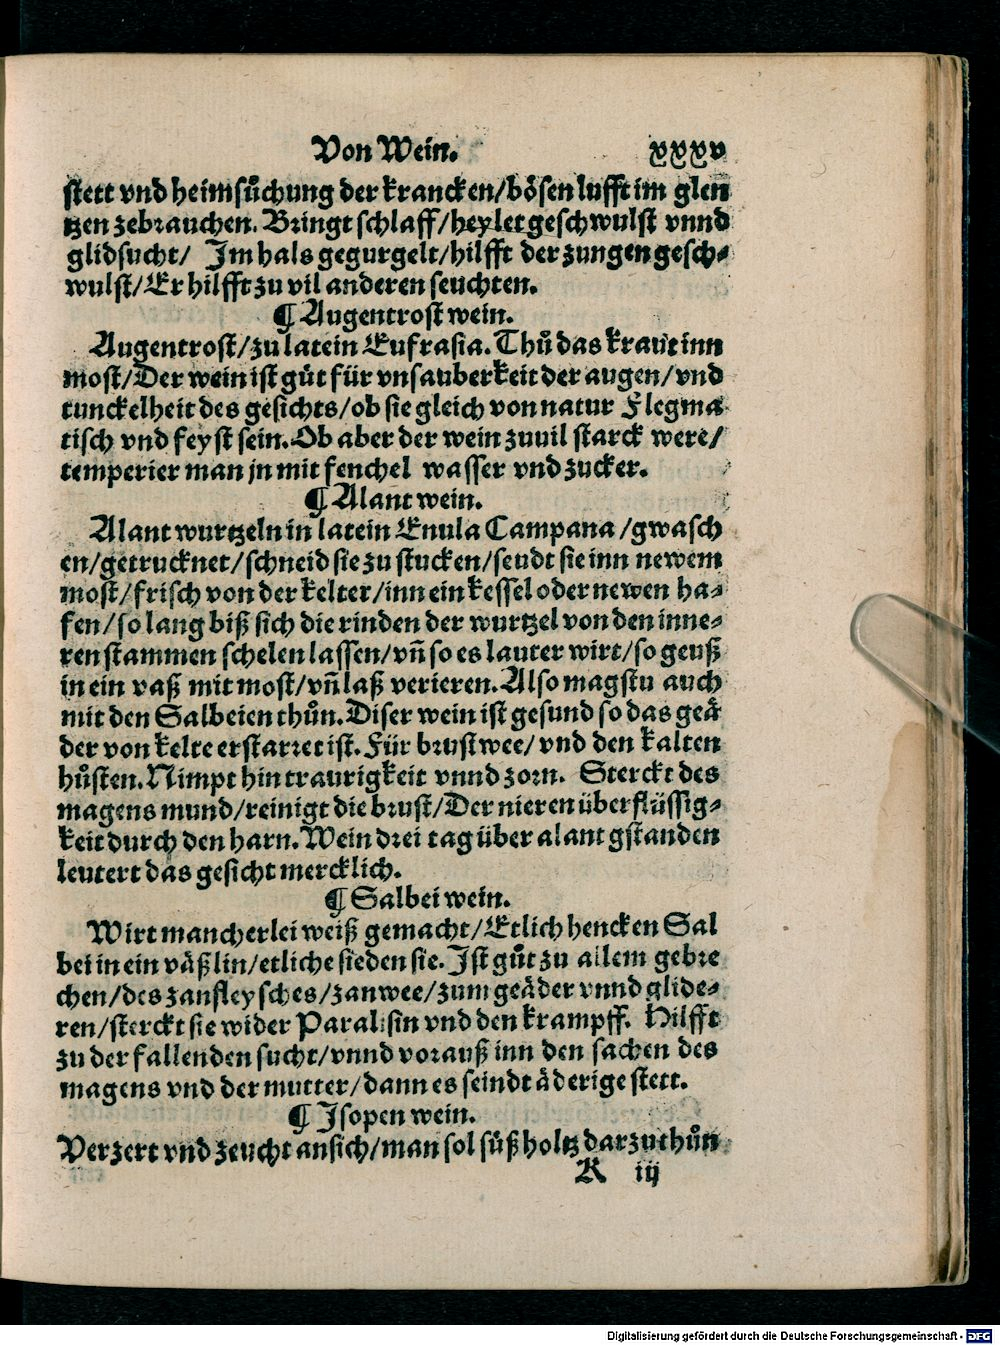 Von Wein. xxxv
stett vnd heimsůchung der krancken/bösen lufft im glen
tzen zebrauchen. Bringt schlaff/heylet geschwulst vnnd
glidsucht/ Im hals gegurgelt/hilfft der zungen gesch⸗
wulst/Er hilfft zu vil anderen seuchten.
¶ Augentrost wein.
Augentrost/zu latein Eufrasia. Thů das kraut inn
most/Der wein ist gůt für vnsauberkeit der augen/vnd
tunckelheit des gesichts/ob sie gleich von natur Flegma
tisch vnd feyst sein. Ob aber der wein zuuil starck were/
temperier man jn mit fenchel wasser vnd zucker.
¶ Alant wein.
Alant wurtzeln in latein Enula Campana /gwasch
en/getrucknet/schneid sie zu stucken/seudt sie inn newem
most/frisch von der kelter/inn ein kessel oder newen ha⸗
fen/so lang biß sich die rinden der wurtzel von den inne⸗
ren stammen schelen lassen/vñ so es lauter wirt/so geuß
in ein vaß mit most/vñ laß verieren. Also magstu auch
mit den Salbeien thůn. Diser wein ist gesund so das geä
der von kelte erstarret ist. Für brustwee/vnd den kalten
hůsten. Nimpt hin traurigkeit vnnd zorn. Sterckt des
magens mund/reinigt die brust/Der nieren überflüssig⸗
keit durch den harn. Wein drei tag über alant gstanden
leutert das gesicht mercklich.
¶ Salbei wein.
Wirt mancherlei weiß gemacht/Etlich hencken Sal
bei in ein väßlin/etliche sieden sie. Ist gůt zu allem gebre
chen/des zanfleysches/zanwee/zum geäder vnnd glide⸗
ren/sterckt sie wider Paralisin vnd den krampff. Hilfft
zu der fallenden sucht/vnnd vorauß inn den sachen des
magens vnd der mutter/dann es seindt äderige stett.
¶ Isopen wein.
Verzert vnd zeucht an sich/man sol süßholtz darzu thůn
K iij
Digitalisierung gefördert durch die Deutsche Forschungsgemeinschaft - DFG